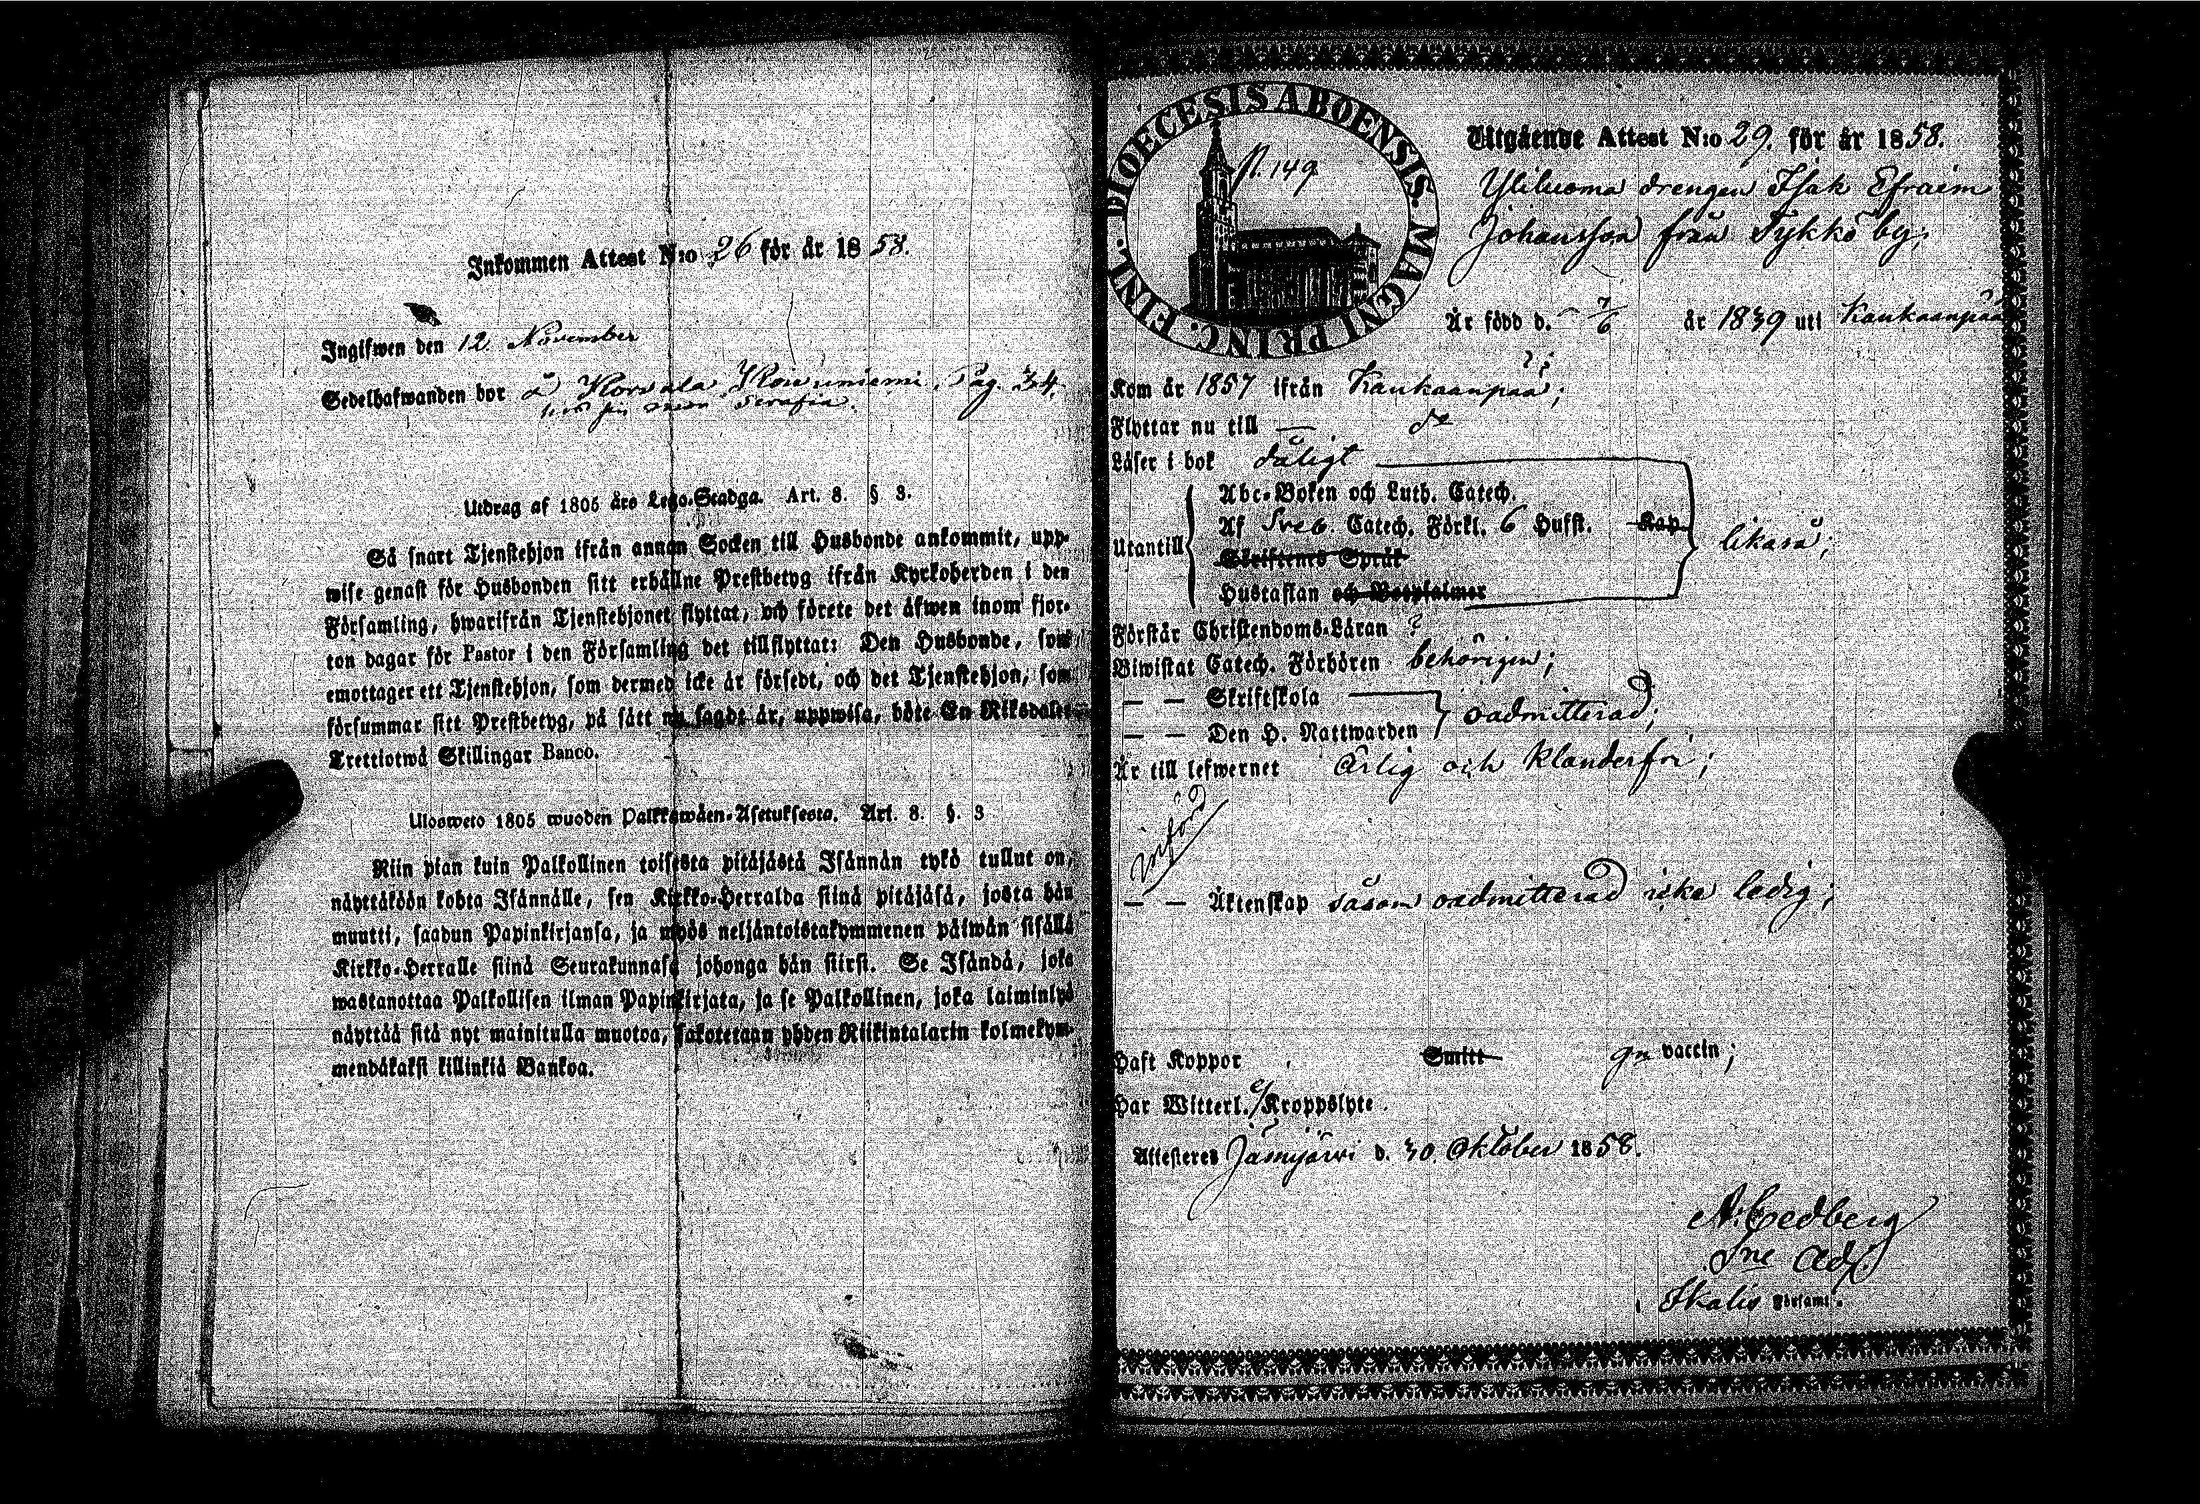 Inkommen Attest N:o 26 för år 1858.
Ingifwen den 12. November
Sedelhafwanden bor å Korvala Pag. 34.
Serafia.
Utdrag af 1805 års Lego-Stadga. Art. 8. § 3.
Så snart Tjenstehjon ifrån annan Socken till Husbonde ankommit, upp-
wise genast för Husbonden sitt erhållne Prestbetyg ifrån Kyrkoherden i den
Församling, hwarifrån Tjenstehjonet flyttat, och förete det äfwen inom fjor-
ton dagar för Pastor i den Församling det tillflyttat: Den Husbonde, som
emottager ett Tjenstehjon, som dermed icke är försedt, och det Tjenstehjon, som
försummar sitt Prestbetyg, på sätt nu sagdt är, uppwisa, böte En Riksdaler
Trettiotwå Skillingar Banco.
Ulosweto 1805 wuoden Palkkawäen-Asetuksesta. Art. 8. §. 3
Niin pian kuin Palkollinen toisesta pitäjästä Isännän tykö tullut on,
näyttäköön kohta Isännälle, sen Kirkko-Herralda siinä pitäjäsä, josta hän
muutti, saadun Papinkirjansa, ja myös neljäntoistakymmenen päiwän sisällä
Kirkko-Herralle siinä Seurakunnasa johonga hän siirsi. Se Isändä, joka
wastanottaa Palkollisen ilman Papinkirjata, ja se Palkollinen, joka laiminlyö
näyttää sitä nyt mainitulla muotoa, sakotetaan yhden Riikintalarin kolmekym-
mendäkaksi killinkiä Bankoa.
DIOECESIS ABOENSIS. MAGNI PRINC. FINL.
N. 149
Utgående Attest N:o 29. för år 1858.
Yliluoma drengen Isak Efraim
Johansson från Tykkö by;
Är född d. 7/6 år 1839 uti Kankaanpää
Kom år 1857 ifrån Kankaanpää;
Flyttar nu till — do
Läser i bok dåligt
Abc-Boken och Luth. Catech.
Utantill Af Sveb. Catech. Förkl. 6 Hufst. Kap. likaså;
Skriftenes Språk
Hustaflan och Botpsalmer
Förstår Christendoms-Läran ?
Biwistat Catech. Förhören behörigen;
— — Skriftskola
— — Den H. Nattwarden oadmitterad;
Är till lefwernet Ärlig och klanderfri;
införd
— — Äktenskap såsom oadmitterad icke ledig;
Haft Koppor Smitt gn vaccin;
Har Witterl. e/ Kroppslyte.
Attesteres Jämijärvi d. 30. Oktober 1858.
A: Cedberg
Sne Adj.
i Ikalis Församl.